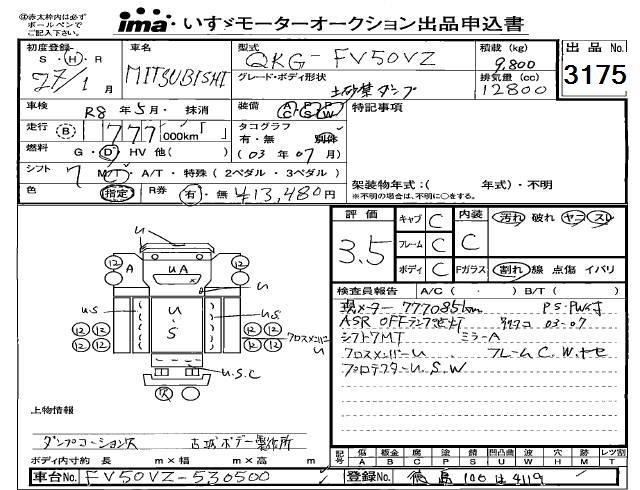 ㊟赤太枠内は必ず
ボールペンで
ご記入下さい。
ima いすゞモーターオークション出品申込書
初度登録 車名 型式 積載 (kg) 出品 No.
S・H・R MITSUBISHI QKG-FV50VZ 9,800 3175
27年1月 グレード・ボディ形状 排気量 (cc)
土砂禁ダンプ 12800
車検 R8年5月・抹消 装備 A/C P/G P/W 特記事項
走行 (B) 777,000km「 」 タコグラフ 有・無
燃料 G・D・HV 他( ) (03年07月)
シフト 7 M/T・A/T・特殊(2ペダル・3ペダル) 架装物年式:( 年式)・不明
※不明の場合は、不明に○をする。
色 指定 R券 有・無 ¥13,480円
評価 3.5 キャブ C 内装 C 汚れ 破れ ヤニ スレ
フレーム C
ボディ C Fガラス 割れ 線 点傷 イバリ
検査員報告 A/C( ・ ) B/T( )
現メーター 777085km PS・PW付
ASR OFFランプ点灯 タコ 03-07
シフト7MT ミラーA
クロスメンバーU フレームC.W.ヤセ
プロテクターU.S.W
U
⑫ A UA ⑫
U
U.S U・S U.S
⑫⑫ ⑫⑫ クロスメンバー U
⑫⑫ ⑫⑫
U.S.C
上物情報
ダンプコーション欠 古城ボデー製作所
ボディ内寸约 長 m×幅 m×高 m
記号 傷 A 板金 B 腐 C 塗 P 錆 S 凹凸曲 U 波 W 穴 H 跡 M レツ割 T
車台No. FV50VZ-530500 登録No. 徳島 100 は 4119